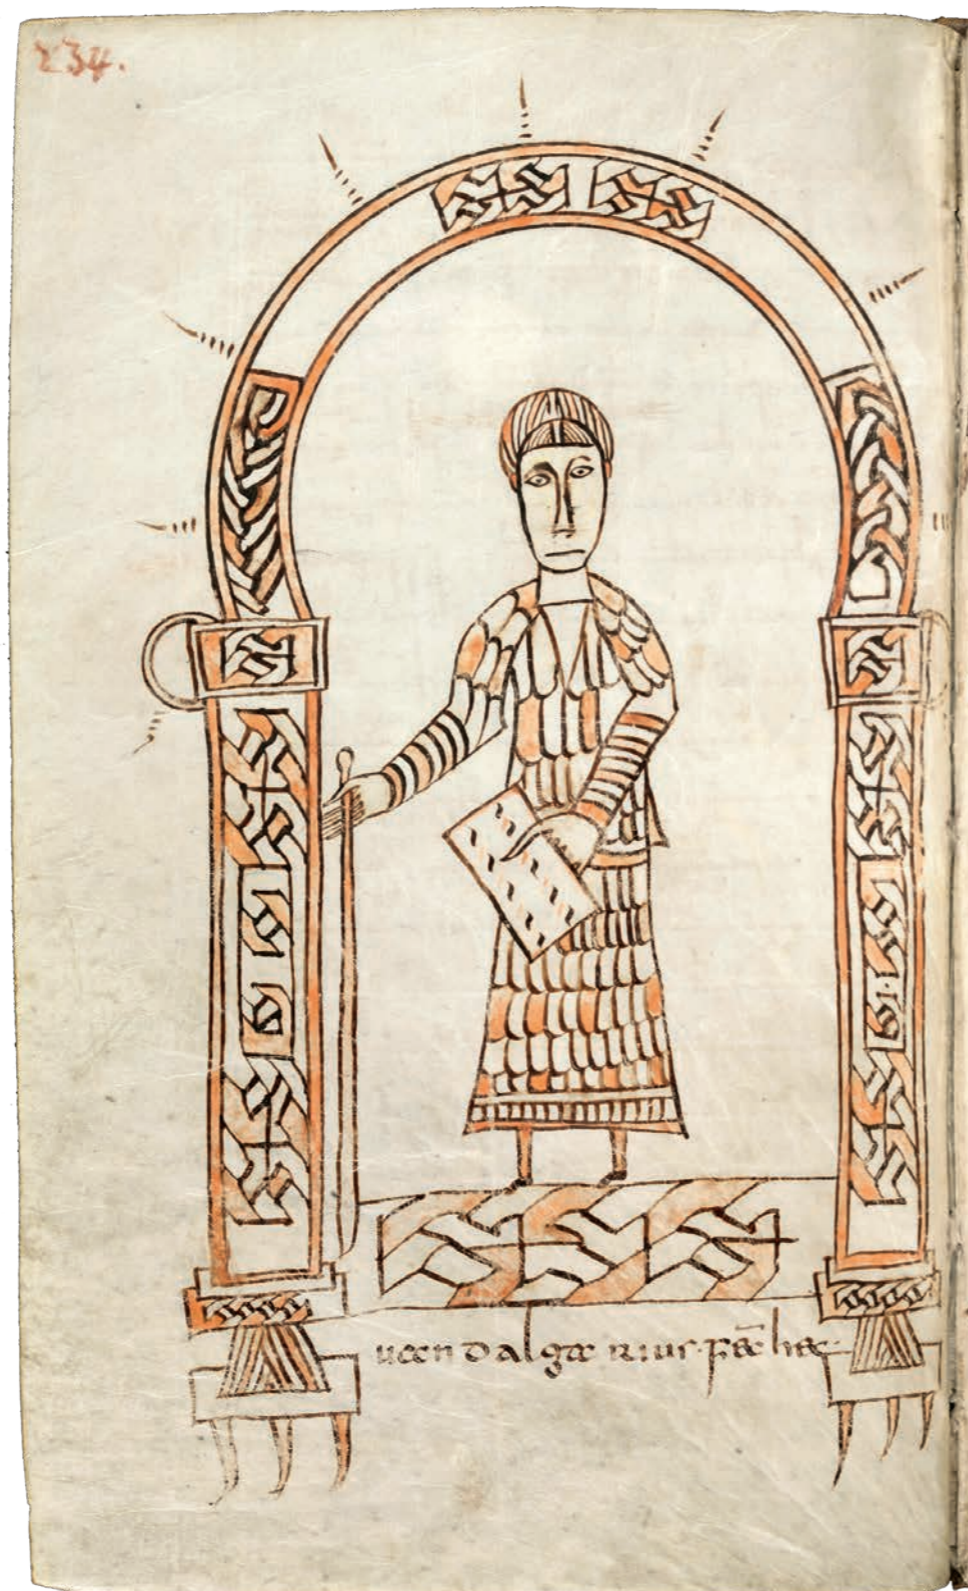 234.
uandalgarius · fec̄ hec ·